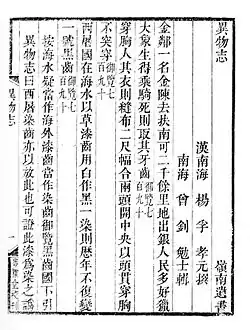 異物志 嶺南遺書
漢南海 楊孚 孝元撰
南海 曾釗 勉士輯
金鄰一名金陳去扶南可二千餘里地出銀人民多好獵
大象生得乘騎死則取其牙齒御覽七百九十
穿胸人其衣則縫布二尺幅合兩頭開中央以頭貫穿胸
不突穿御覽七百九十
西屠國在海水以草漆齒用白作黑一染則歷年不復變
一號黑齒御覽七百九十
按海水疑當作海外漆齒當作染齒御覽黑齒國下引
異物志曰西屠染齒亦以放此也可證此漆為染之
異物志
一